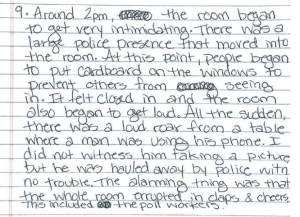 9. Around 2pm, the room began
to get very intimidating. There was a
large police presence that moved into
the room. At this point, people began
to put cardboard on the windows to
prevent others from seeing
in. It felt closed in and the room
also began to get loud. All the sudden,
there was a loud roar from a table
where a man was using his phone. I
did not witness him taking a picture
but he was hauled away by police with
no trouble. The alarming thing was that
the whole room errupted in claps & cheers.
This included the poll workers.